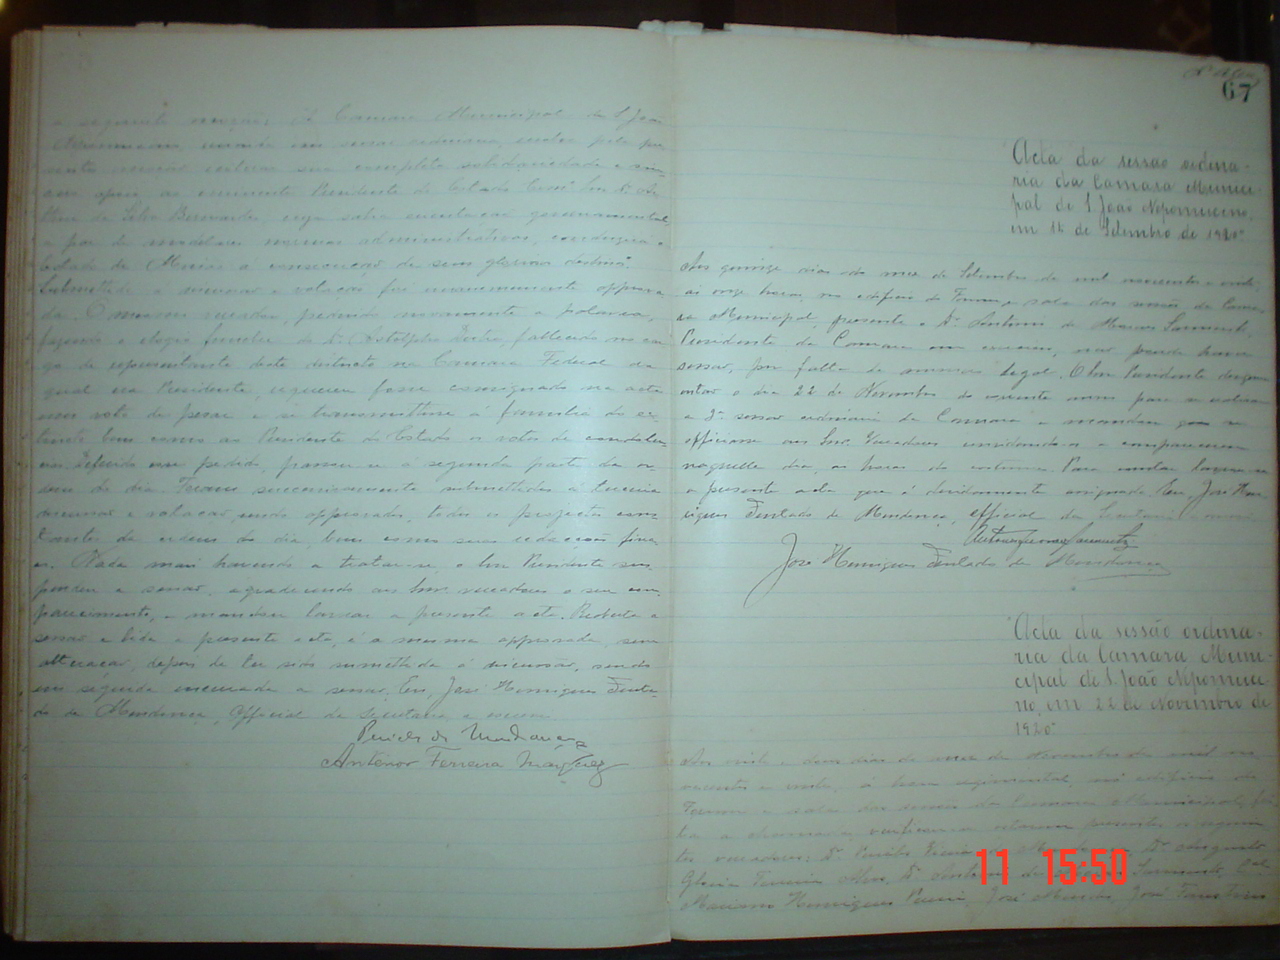 a seguinte moção: "A Camara Municipal de S. João
Nepomuceno, reunida em sessão ordinaria, vendo pela pre
sente moção reiterar sua completa solidariedade e
apoio ao eminente Presidente do Estado Exmo. Snr. Dr. Ar
thur da Silva Bernardes, cuja sabia orientação governamental,
a par de modelares normas administrativas, conduzirá o
Estado de Minas á consecução de seus gloriosos destinos".
Submettida á discussão e votação foi unanimemente approva
da. O mesmo vereador, pedindo novamente a palavra,
fazendo o elogio funebre do Dr. Astolpho Dutra, fallecido no car
go de representante deste districto na Camara Federal da
qual era Presidente, requereu fosse consignado na acta
um voto de pesar e se transmittisse á familia do ex
tincto bem como ao Presidente do Estado os votos de condolen
cias. Deferido esse pedido, passou-se á segunda parte da or
dem do dia. Foram successivamente submettidos á terceira
discussão e votação, sendo approvados, todos os projectos cons
tantes da ordem do dia, bem como suas redacções fina
es. Nada mais havendo a tratar-se, o Snr. Presidente sus
pendeu a sessão, agradecendo aos Snrs. vereadores o seu com
parecimento, e mandou lavrar a presente acta. Reaberta a
sessão e lida a presente acta, é a mesma approvada, sem
alteração, depois de ter sido submettida á discussão, sendo
em seguida encerrada a sessão. Eu, José Henriques Furta
do de Mendonça, official da secretaria, a escrevi.
Pericles de Mendonça
Antenor Ferreira
67
Acta da sessão ordina-
ria da Camara Munici-
pal de S. João Nepomuceno,
em 15 de Setembro de 1920
Aos quinze dias do mez de Setembro de mil novecentos e vinte,
ás onze horas, no edificio do Forum e sala das sessões da Cama
ra Municipal, presente o Dr. Antonio de Moraes Sarmento,
Presidente da Camara em exercicio, não poude haver
sessão, por falta de numero legal. O Snr. Presidente designou
então o dia 22 de Novembro do corrente anno para se realisar
a 3ª sessão ordinaria da Camara e mandou que se
officiasse aos Snrs. Vereadores convidando-os a comparecerem
naquelle dia, ás horas do costume. Para constar lavrou-se
a presente acta que é devidamente assignada. Eu, José Hen
riques Furtado de Mendonça, official da Secretaria a escrevi
José Henriques Furtado de Mendonça
Acta da sessão ordina-
ria da Camara Muni-
cipal de S. João Nepomuce-
no, em 22 de Novembro de
1920
Aos vinte e dous dias do mez de Novembro de mil no
vecentos e vinte, á hora regimental, no edificio do
Forum e sala das sessões da Camara Municipal, fei
ta a chamada verificou-se estarem presentes os seguin
tes vereadores: Dr. Pericles de Mendonça, Dr. Augusto
Gloria Ferreira Alves, Dr. Antonio de Sarmento, Cel.
Mariano Henriques Pereira, José Mendes, José Faustino
11 15:50